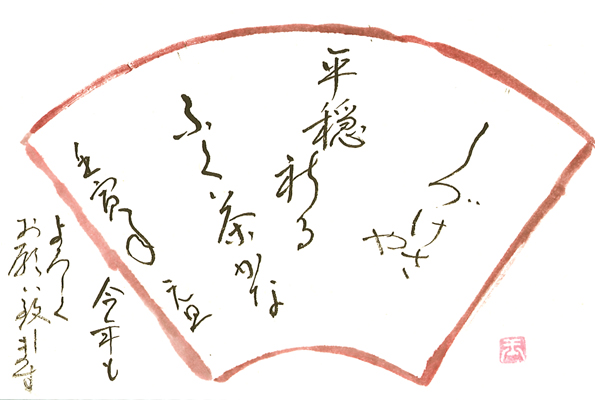 しづ
けさ
や
平穏
祈る
ふく茶かな
壬寅年
元旦
今年も
よろしく
お願い致します